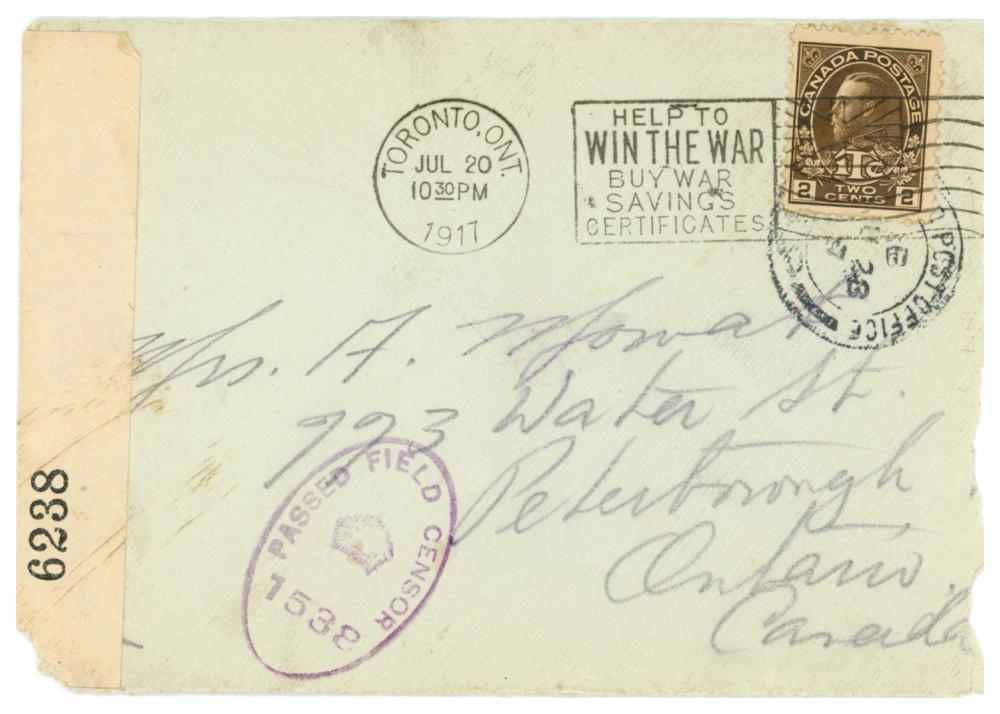 CANADA POSTAGE
1Tc
2 TWO CENTS 2
TORONTO, ONT.
JUL 20
10 30 PM
1917
HELP TO
WIN THE WAR
BUY WAR
SAVINGS
CERTIFICATES
POST OFFICE
28
Mrs. A. Mowat
993 Water St.
Peterborough
Ontario.
Canada
PASSED FIELD CENSOR
1538
6238